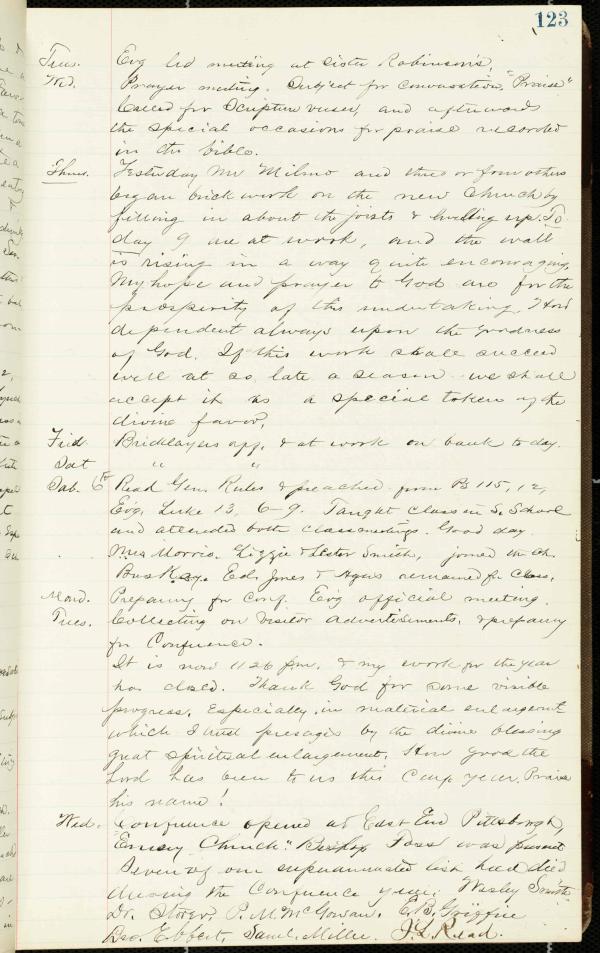 123
Tues. Evg led meeting at Sister Robinson's,
Wed. Prayer meeting. Subject for conversation, "Praise"
Called for Scripture verses, and afterwards
the special occasions for praise recorded
in the bible.
Thurs. Yesterday Mr Milno and three or four others
began brick work on the new Church by
filling in about the joists & leveling up. To
day 9 are at work, and the wall
is rising in a way quite encouraging.
My hope and prayer to God are for the
prosperity of this undertaking. How
dependent always upon the goodness
of God. If this work shall succeed
well at so late a season we shall
accept it as a special token of the
divine favor.
Frid. Bricklayers & at work on bank to day.
Sat " "
Sab. 6th Read Gen. Rules & preached from Ps 115, 12,
Evg. Luke 13, 6-9. Taught class in S. School
and attended both classmeetings. Good day.
Mrs Morris. Lizzie & Lester Smith, joined
Ed. Jones & remained for class.
Mond. Preparing for Conf. Evg official meeting.
Tues. Collecting on Visitor advertisements, & preparing
for Conference.
It is now 11 26 p.m. & my work for the year
has closed. Thank God for some visible
progress, especially in material enlargement
which I trust presages by the divine blessing
great spiritual enlargement. How good the
Lord has been to us this Conf. year. Praise
his name!
Wed. Conference opened at East End Pittsburgh,
"Emory Church" Bishop Foss was present
Seven of our superannuated list had died
during the Conference year: Wesley Smith
Dr. Storer, P. M. McGowan, E. B. Griffin
Geo. Ebbert, Saml. Miller. J. L. Read.